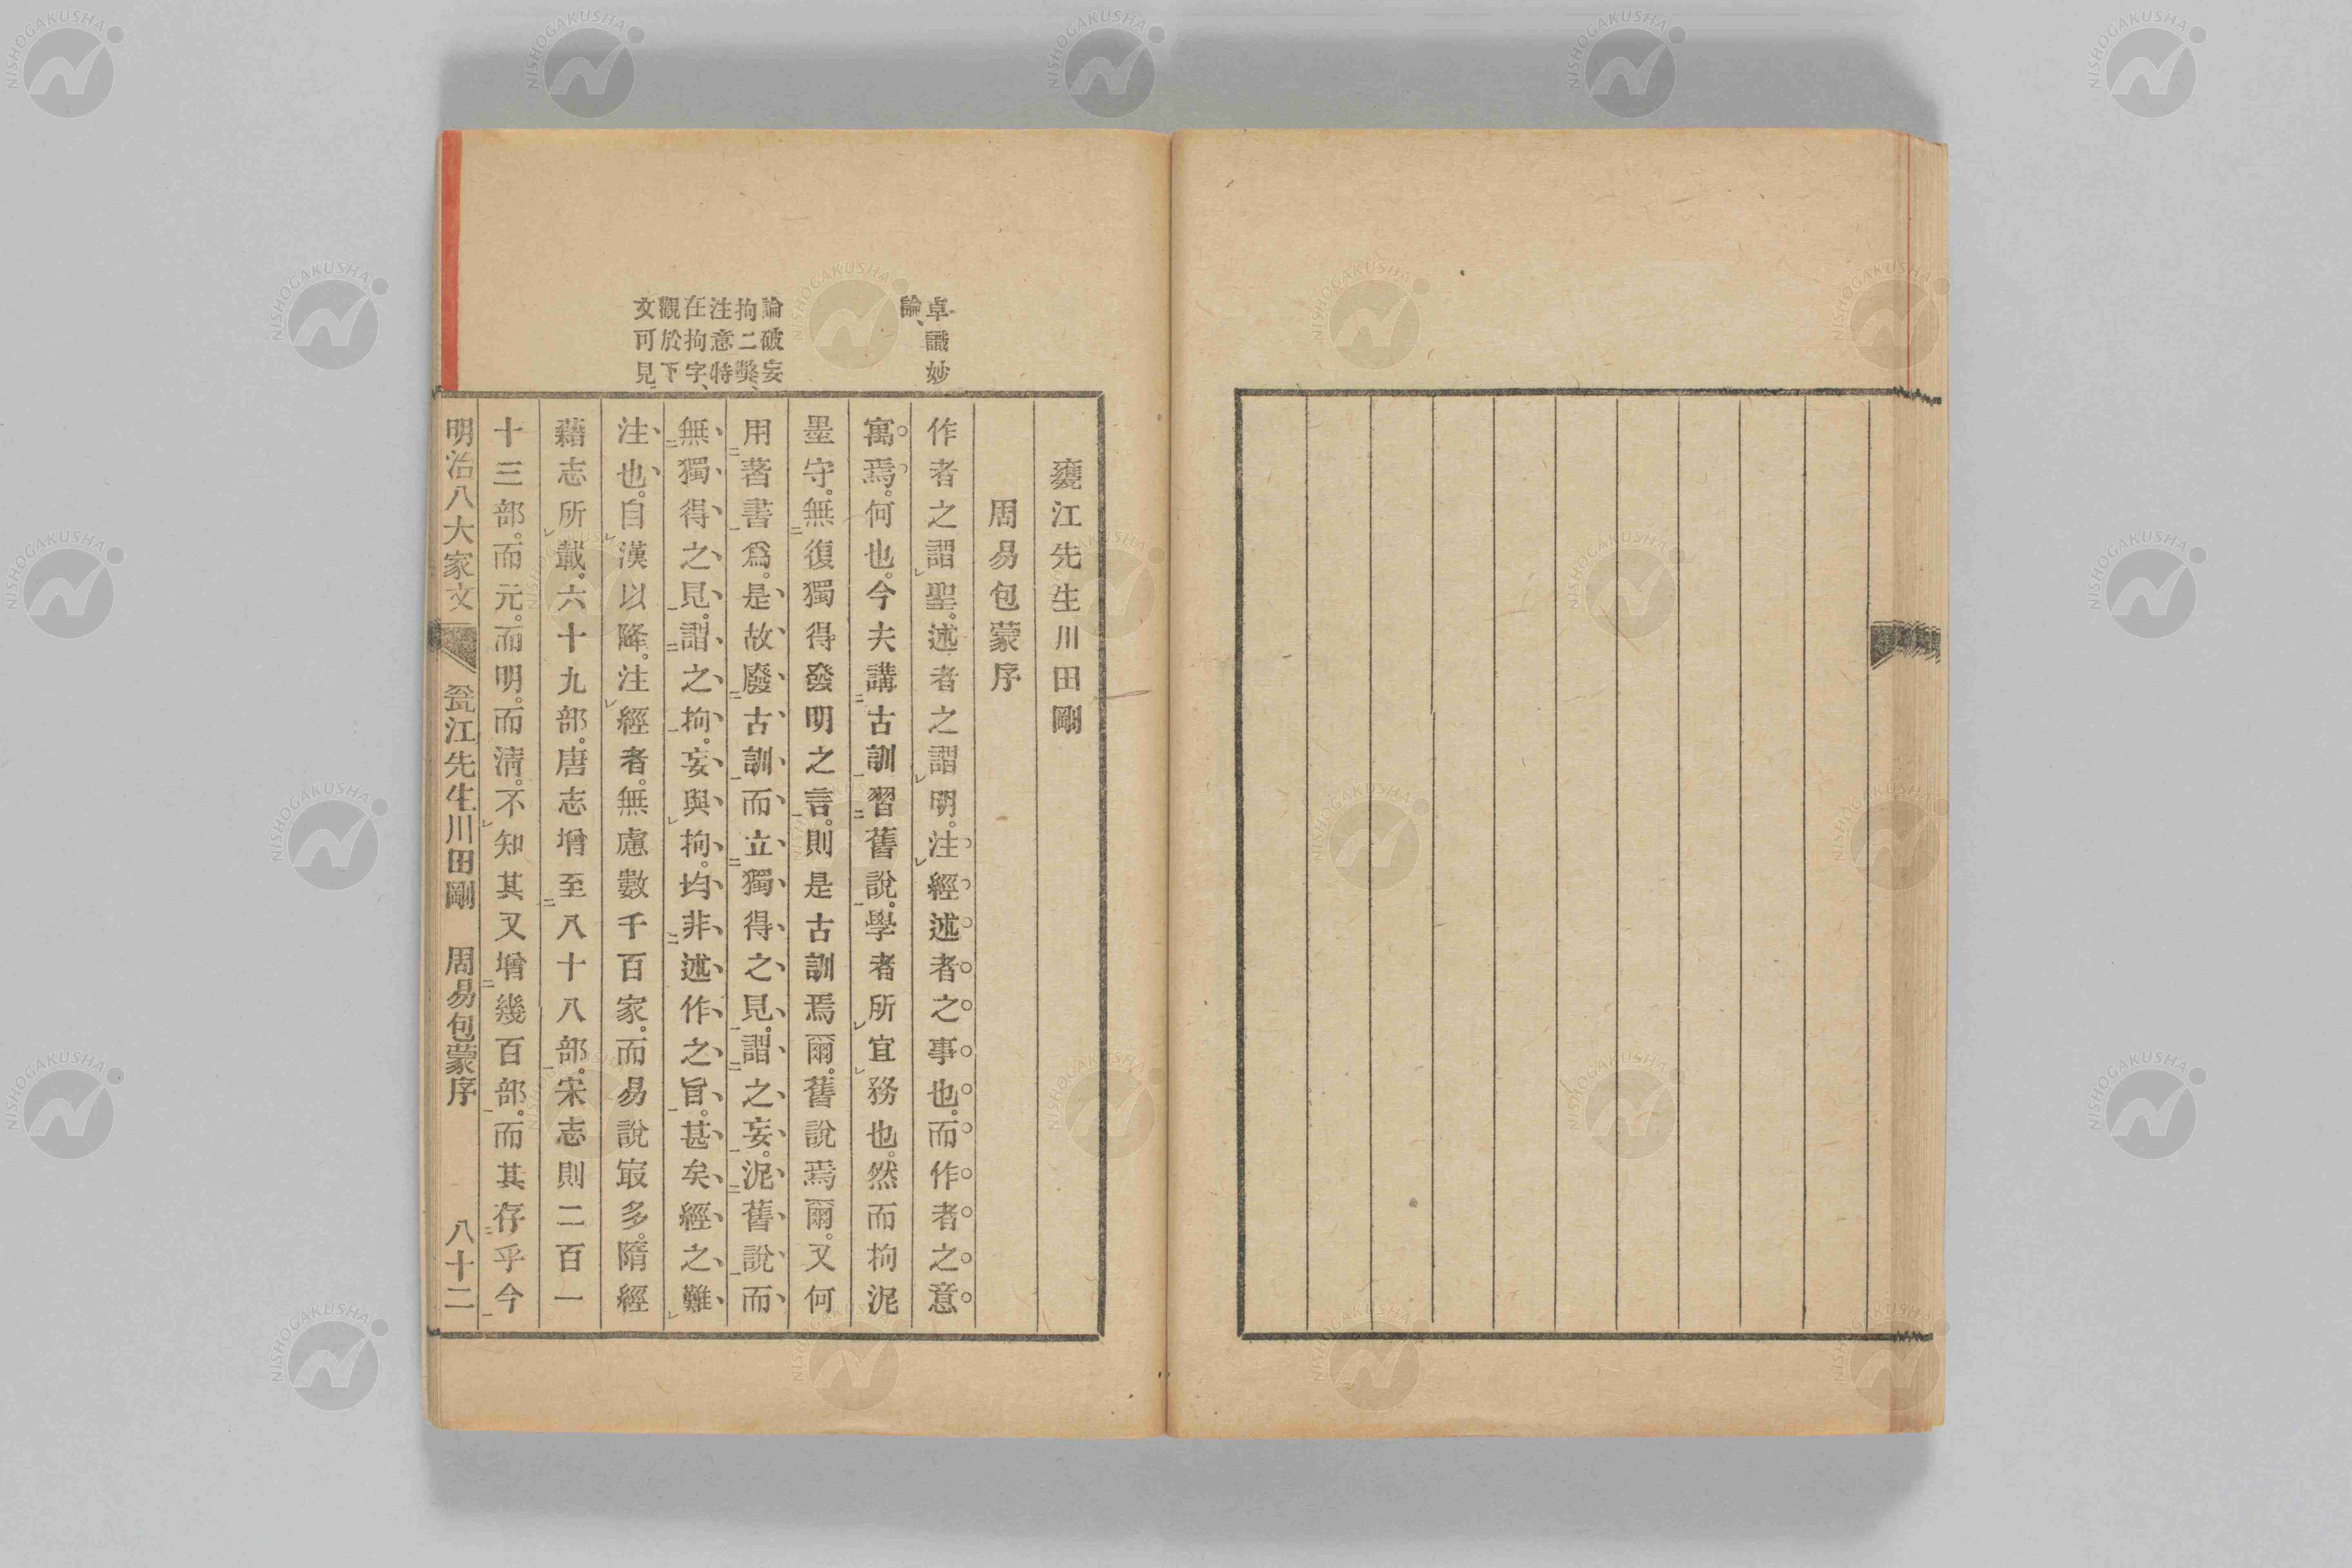 甕江先生川田剛
周易包蒙序
作者之謂聖。述者之謂明。注經述者之事也。而作者之意
寓焉。何也。今夫講古訓習舊說。學者所宜務也。然而拘泥
墨守。無復獨得發明之言。則是古訓焉爾。舊說焉爾。又何
用著書爲。是故廢古訓而立獨得之見。謂之妄。泥舊說而
無獨得之見。謂之拘。妄與拘。均非述作之旨。甚矣經之難
注也。自漢以降。注經者。無慮數千百家。而易說寂多。隋經
藉志所載。六十九部。唐志增至八十八部。宋志則二百一
十三部。而元。而明。而淸。不知其又增幾百部。而其存乎今
卓識妙
論、
論破妄
拘二弊、
注意特
在拘字、
觀於下
文可見
明治八大家文 瓮江先生川田剛 周易包蒙序 八十二
NISHOGAKUSHA